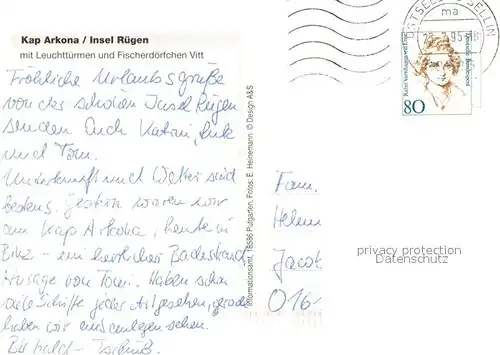 Kap Arkona / Insel Rügen
mit Leuchttürmen und Fischerdörfchen Vitt
Fröhliche Urlaubsgrüße
von der schönen Insel Rügen
senden Euch Katrin,
und Tom.
Unterkunft und Wetter sind
bestens. Gestern waren wir
am Kap Arkona, heute in
Binz - ein herrlicher Badestrand
Aussage von Tom. Haben schon
viele Schiffe jeder Art gesehen, gerade
haben wir eins anlegen sehen.
Bis bald - Tschüß.
Informationsamt, 18556 Putgarten, Fotos: E. Heinemann © Design A&S
OSTSEEBAD SELLIN
ma
95-18
Rahel Varnhagen von Ense
Deutsche Bundespost
80
Fam.
Helm
Jacob
O16
privacy protection
Datenschutz